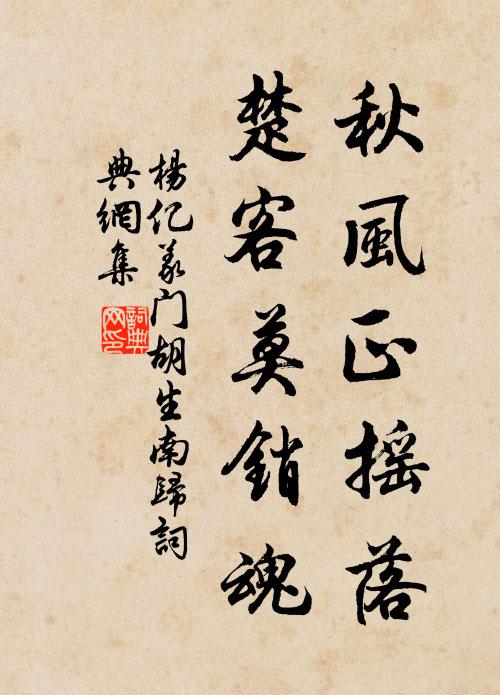 秋風正搖落
楚客莫銷魂
楊億義門胡生南歸詞
典網集
詞典網印